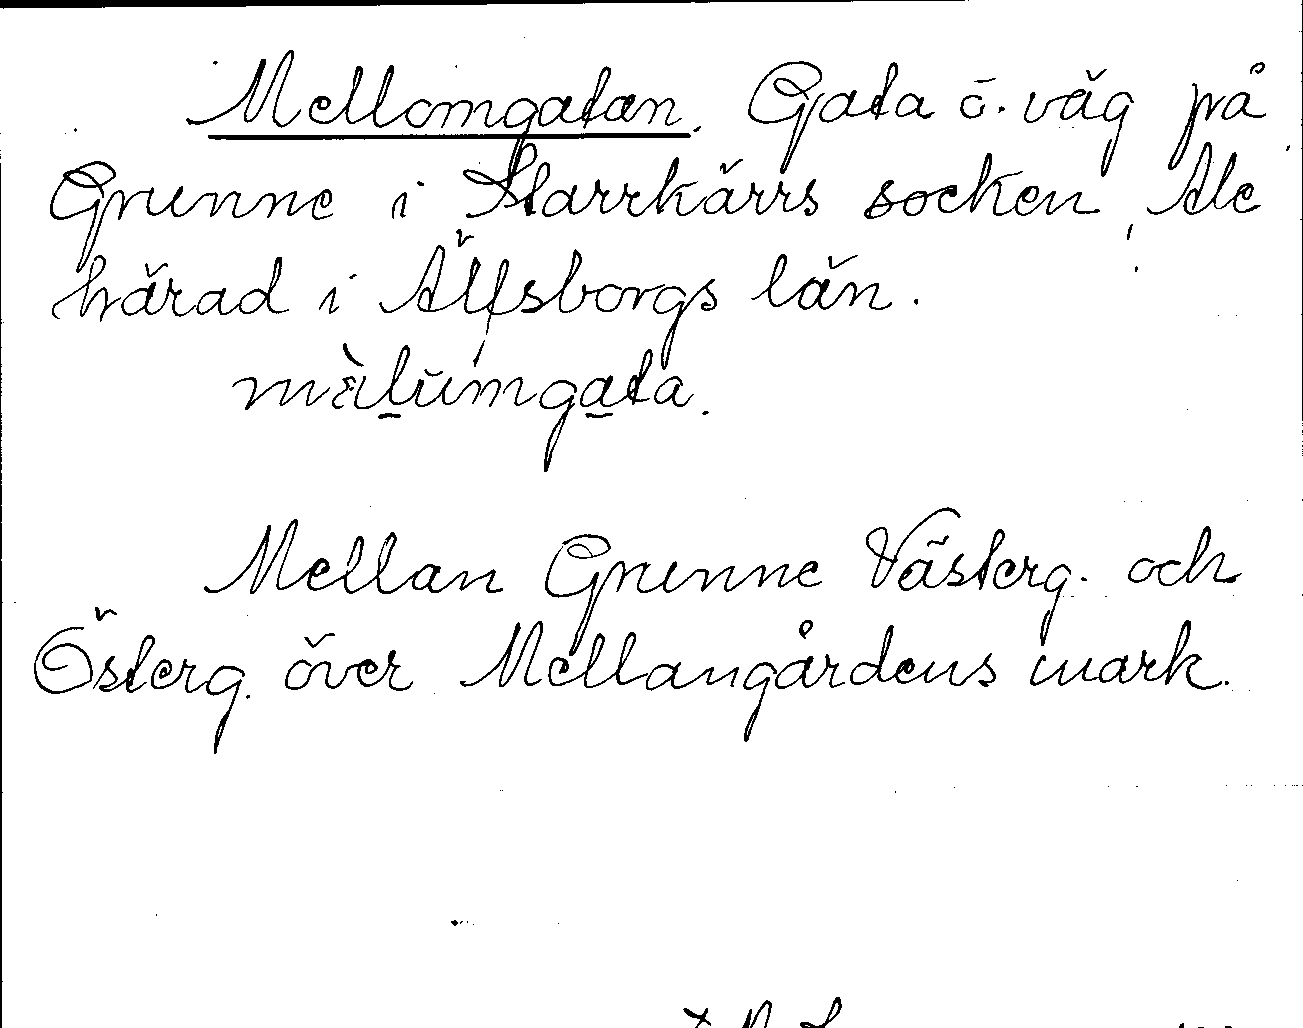 Mellomgatan. Gata ö. väg på
Grunne i Starrkärrs socken, Ale
härad i Älfsborgs län.
mellumgata.
Mellan Grunne Västerg. och
Österg. över Mellangårdens mark.